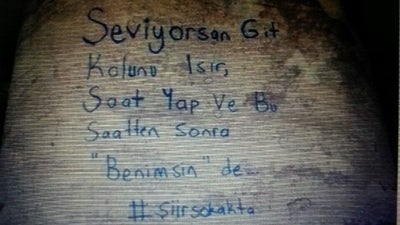 Seviyorsan Git
Kolunu Isır,
Saat Yap Ve Bu
Saatten Sonra
"Benimsin" de
#şiirsokakta